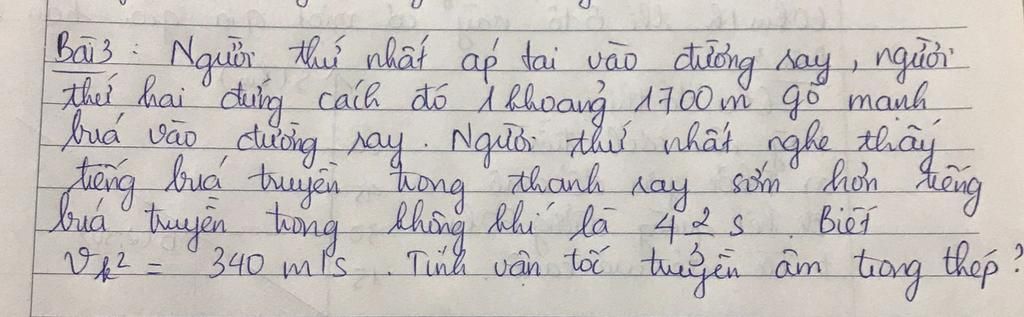 Bài 3 : Người thứ nhất áp tai vào đường ray, người
thứ hai đứng cách đó 1 khoảng 1700m gõ mạnh
búa vào đường ray. Người thứ nhất nghe thấy
tiếng búa truyền trong thanh ray sớm hơn tiếng
búa truyền trong không khí là 4 2/3 s. Biết
vk² = 340 m/s. Tính vận tốc truyền âm trong thép?